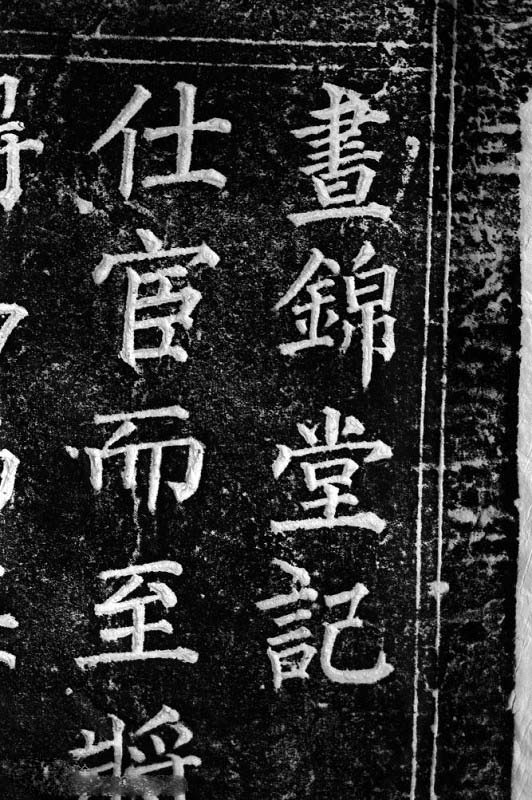 晝錦堂記
仕宦而至將